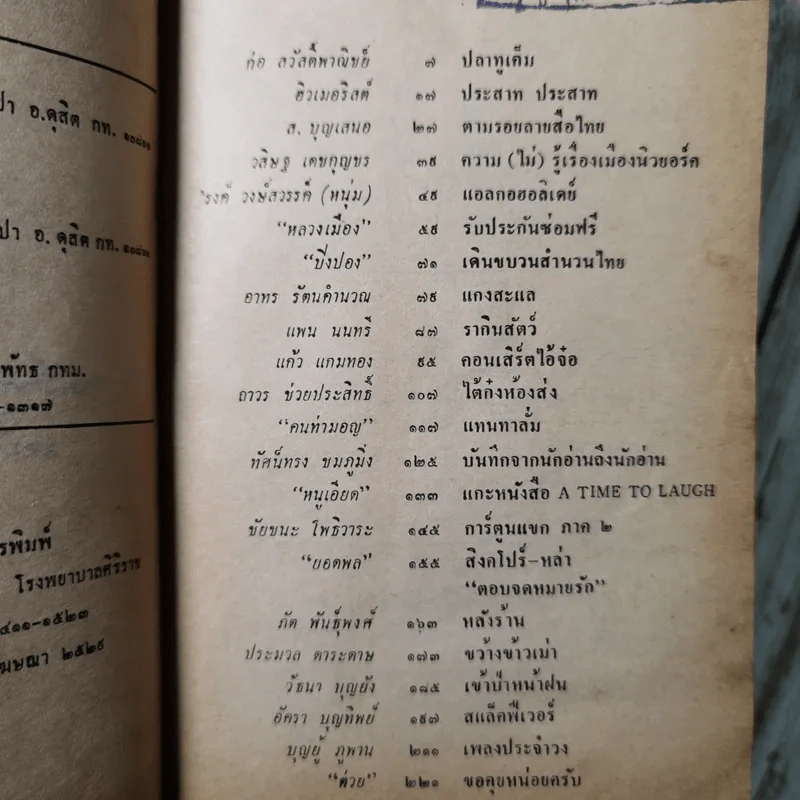 ปา อ.ดุสิต กท.
ปา อ. ดุสิต กท.
พัทธ กทม.
-๑๓๑๗
รพิมพ์
โรงพยาบาลศิริราช
๔๑๑-๑๕๒๓
ฆษณา ๒๕๒๙
ก่อ สวัสดิ์พาณิชย์ ๗ ปลาทูเค็ม
ฮิวเมอริสต์ ๑๗ ประสาท ประสาท
ส. บุญเสนอ ๒๗ ตามรอยลายสือไทย
วสิษฐ เดชกุญชร ๓๙ ความ (ไม่) รู้เรื่องเมืองนิวยอร์ค
'รงค์ วงษ์สวรรค์ (หนุ่ม) ๔๙ แอลกอฮอลิเดย์
“หลวงเมือง” ๕๙ รับประกันซ่อมฟรี
“บิ๋งปอง” ๗๑ เดินขบวนสำนวนไทย
อาทร รัตนคำนวณ ๗๙ แกงสะแล
แพน นนทรี ๘๗ รากินสัตว์
แก้ว แกมทอง ๙๕ คอนเสิร์ตไอ้จ๋อ
ถาวร ช่วยประสิทธิ์ ๑๐๗ ไต้ก๋งห้องส่ง
“คนท่ามอญ” ๑๑๗ แทนทาลั่ม
ทัศน์ทรง ชมภูมิ่ง ๑๒๕ บันทึกจากนักอ่านถึงนักอ่าน
“หนูเอียด” ๑๓๓ แกะหนังสือ A TIME TO LAUGH
ชัยชนะ โพธิวาระ ๑๔๕ การ์ตูนแขก ภาค ๒
“ยอดพล” ๑๕๕ สิงคโปร์-หล่า
“ตอบจดหมายรัก”
ภัต พันธุ์พงศ์ ๑๖๓ หลังร้าน
ประมวล ดาระดาษ ๑๗๓ ขว้างข้าวเม่า
วัธนา บุญยัง ๑๘๕ เข้าป่าหน้าฝน
อัครา บุญทิพย์ ๑๙๗ สแล็คฟีเวอร์
บุญยู้ ภูพาน ๒๑๑ เพลงประจำวง
“ต่วย” ๒๒๑ ขอคุยหน่อยครับ